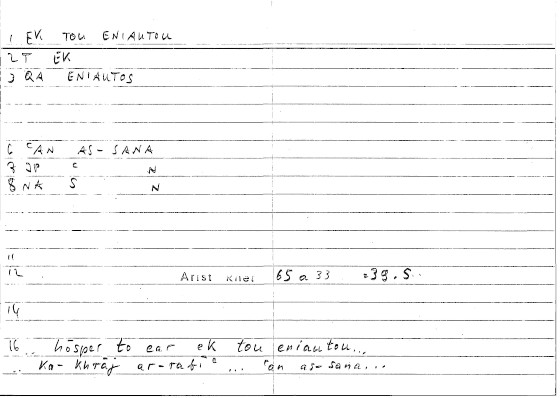 1 EK TOU ENIAUTOU
2 T EK
3 QA ENIAUTOS
6 ʿAN AS-SANA
7 JP ʿ N
8 NK S N
11
12 Arist Rhet 65 a 33 = 39.5
14
16 .. hōsper to ear ek tou eniautou...
.. Ka-khrāj ar-rabīʿ ... ʿan as-sana...